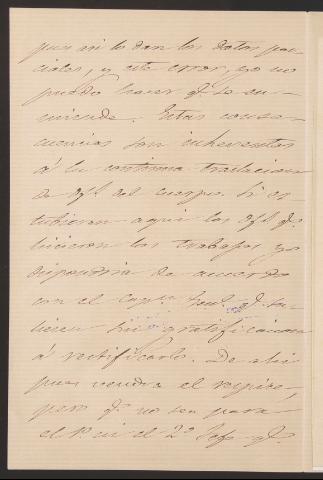 pues asi lo dan los datos par-
ciales, y este error, yo no
puedo hacer q. se en-
miende. Estas conse-
cuencias son inherentes
á la continua traslacion
de ofs. del cuerpo. Si es-
tubieran aqui los ofs. q.
hicieron los trabajos yo
dispondria de acuerdo
con el Capn. Genl. q. sa-
liesen sin gratificacion
á rectificarlo. De ahi
pues vendrá el
pero q. no sea para
el 1º ni el 2º Jefe q.